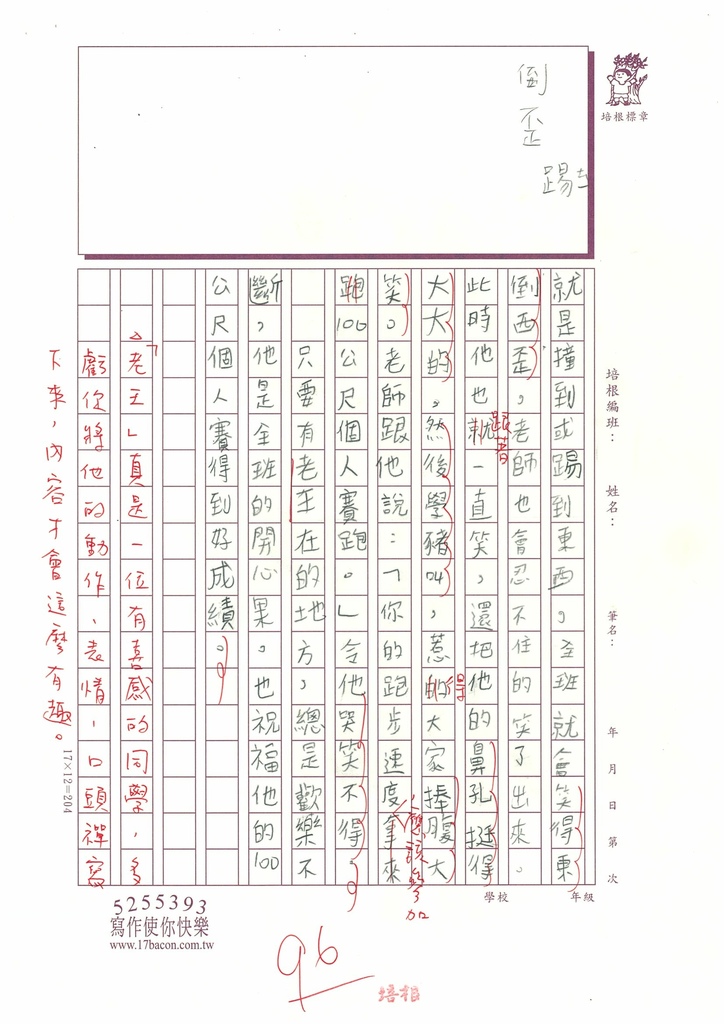 倒
歪
踢
培根標章
培根編班：
姓名：
筆名：
年 月 日 第 次
就是撞到或踢到東西。全班就會笑得東
倒西歪，老師也會忍不住的笑了出來。
此時他也就一直笑，還把他的鼻孔挺得
跟著
大大的。然後學豬叫，惹的大家捧腹大
得
笑。老師跟他說：「你的跑步速度拿來
應該參加
跑100公尺個人賽跑。」令他哭笑不得。
只要有老王在的地方，總是歡樂不
斷，他是全班的開心果。也祝福他的100
公尺個人賽得到好成績。
「老王」真是一位有喜感的同學，多
虧你將他的動作、表情、口頭禪寫
下來，內容才會這麼有趣。
17×12=204
學校
年級
5255393
寫作使你快樂
www.17bacon.com.tw
96
培根